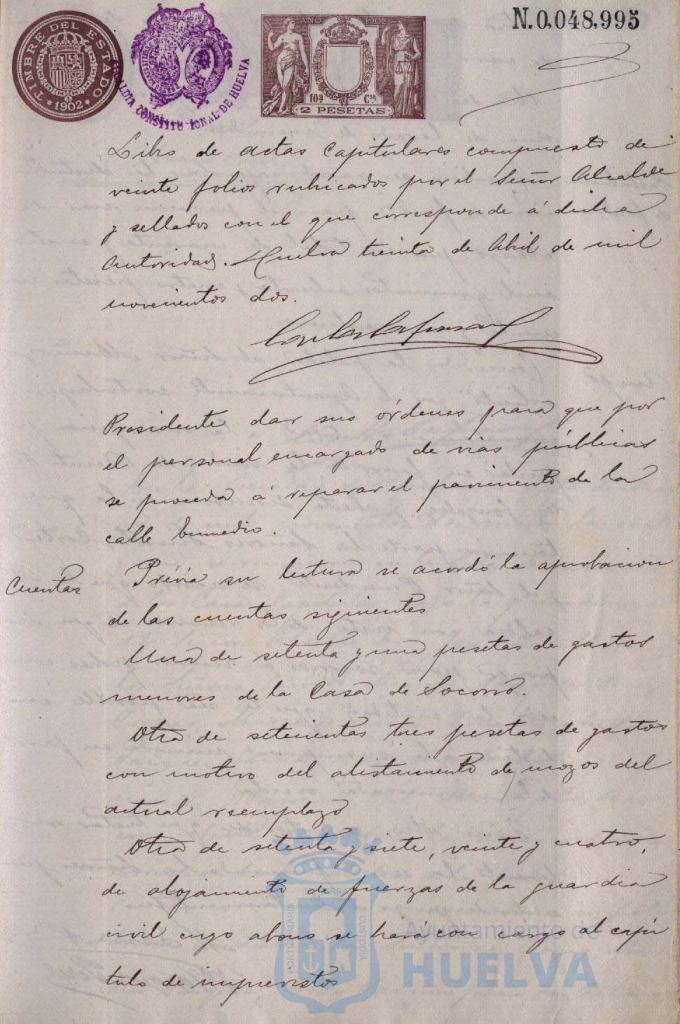 N.0,048,995
TIMBRE DEL ESTADO
1902
ALCALDIA CONSTITUCIONAL DE HUELVA
AÑO 1902
10ª Cˢᵉ
2 PESETAS
Libro de actas Capitulares compuesto de
veinte folios rubricados por el Señor Alcalde
y sellados con el que corresponde á dicha
autoridad. Huelva treinta de Abril de mil
novecientos dos.
Presidente dar sus órdenes para que por
el personal encargado de vias públicas
se proceda á reparar el pavimento de la
calle Enmedio.
Cuentas
Prévia su lectura se acordó la aprobacion
de las cuentas siguientes
Una de setenta y una pesetas de gastos
menores de la Casa de Socorro.
Otra de setecientas tres pesetas de gastos
con motivo del alistamiento de mozos del
actual reemplazo
Otra de setenta y siete, veinte y cuatro,
de alojamiento de fuerzas de la guardia
civil cuyo abono se hará con cargo al capí
tulo de imprevistos
Ayuntamiento de
HUELVA